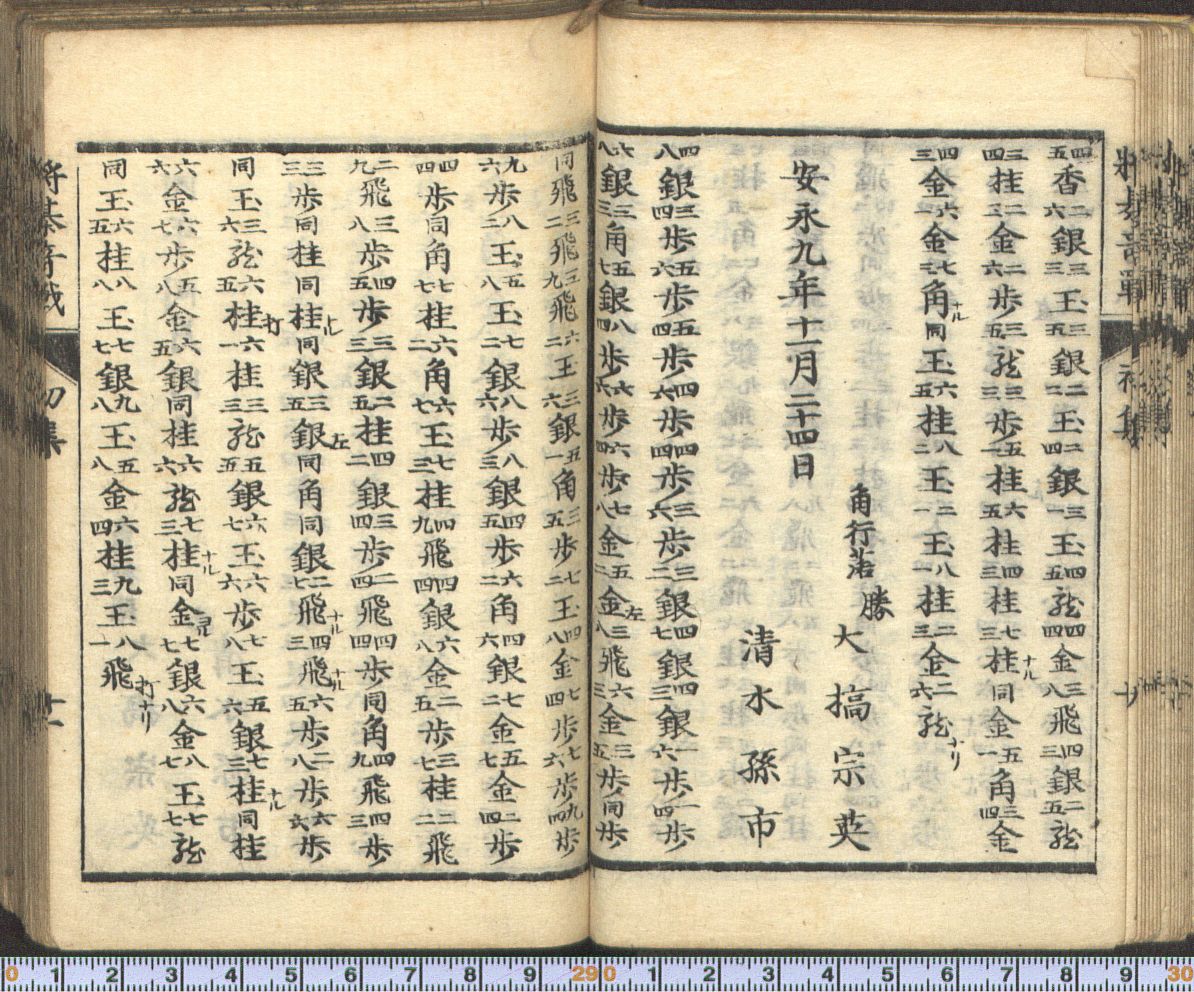 四五香二六銀三三王三五銀二二王二四銀三一玉四五龍四四金三八飛四三銀二五龍
三四桂二三金二六歩三五龍三三歩五一桂六五桂四三桂七三桂ナル同金五一角三四金
四三金六一金七三角ナル同玉六五桂八二王二一玉八一桂二三金二六龍ナリ
角行落
勝
大橋宗英
安永九年十一月二十四日
清水孫市
四八銀三四歩五六歩五四歩四六歩四四歩三六歩三二銀四七銀四三銀一六歩一四歩
六八銀三三角五七銀八四歩六六歩六四歩七八金五二金左三八飛六三金三五歩同歩
同飛三二飛三九飛六二王三六銀五一角三五歩七二王四八金七四歩七六歩九四歩
九六歩八二王五八王七二銀八六歩八三銀四五歩六二角四六銀七二金五七金二四歩
四四歩同角七七桂六二角六七王七三桂四九飛四四銀六五金二五歩三七桂二二飛
二九飛三八歩四五歩三三銀二五桂四二銀三四歩二四飛四四歩同角四九飛四三歩
三三歩同桂同桂ナル同銀三五銀左同角同銀二七飛ナル四三飛ナル六五歩二八歩六六歩
同玉三六龍六五桂打六一桂三三龍五五銀六七王六六歩七八王五六銀七三桂ナル同桂
六六金六七歩五八金六五銀同桂六六龍七三桂ナル同金引七七銀六八金八七王七七龍
同玉六五桂八八王七七銀九八玉五八金六四桂九三王八一飛打ナリ
将棊奇戦 初集 十一